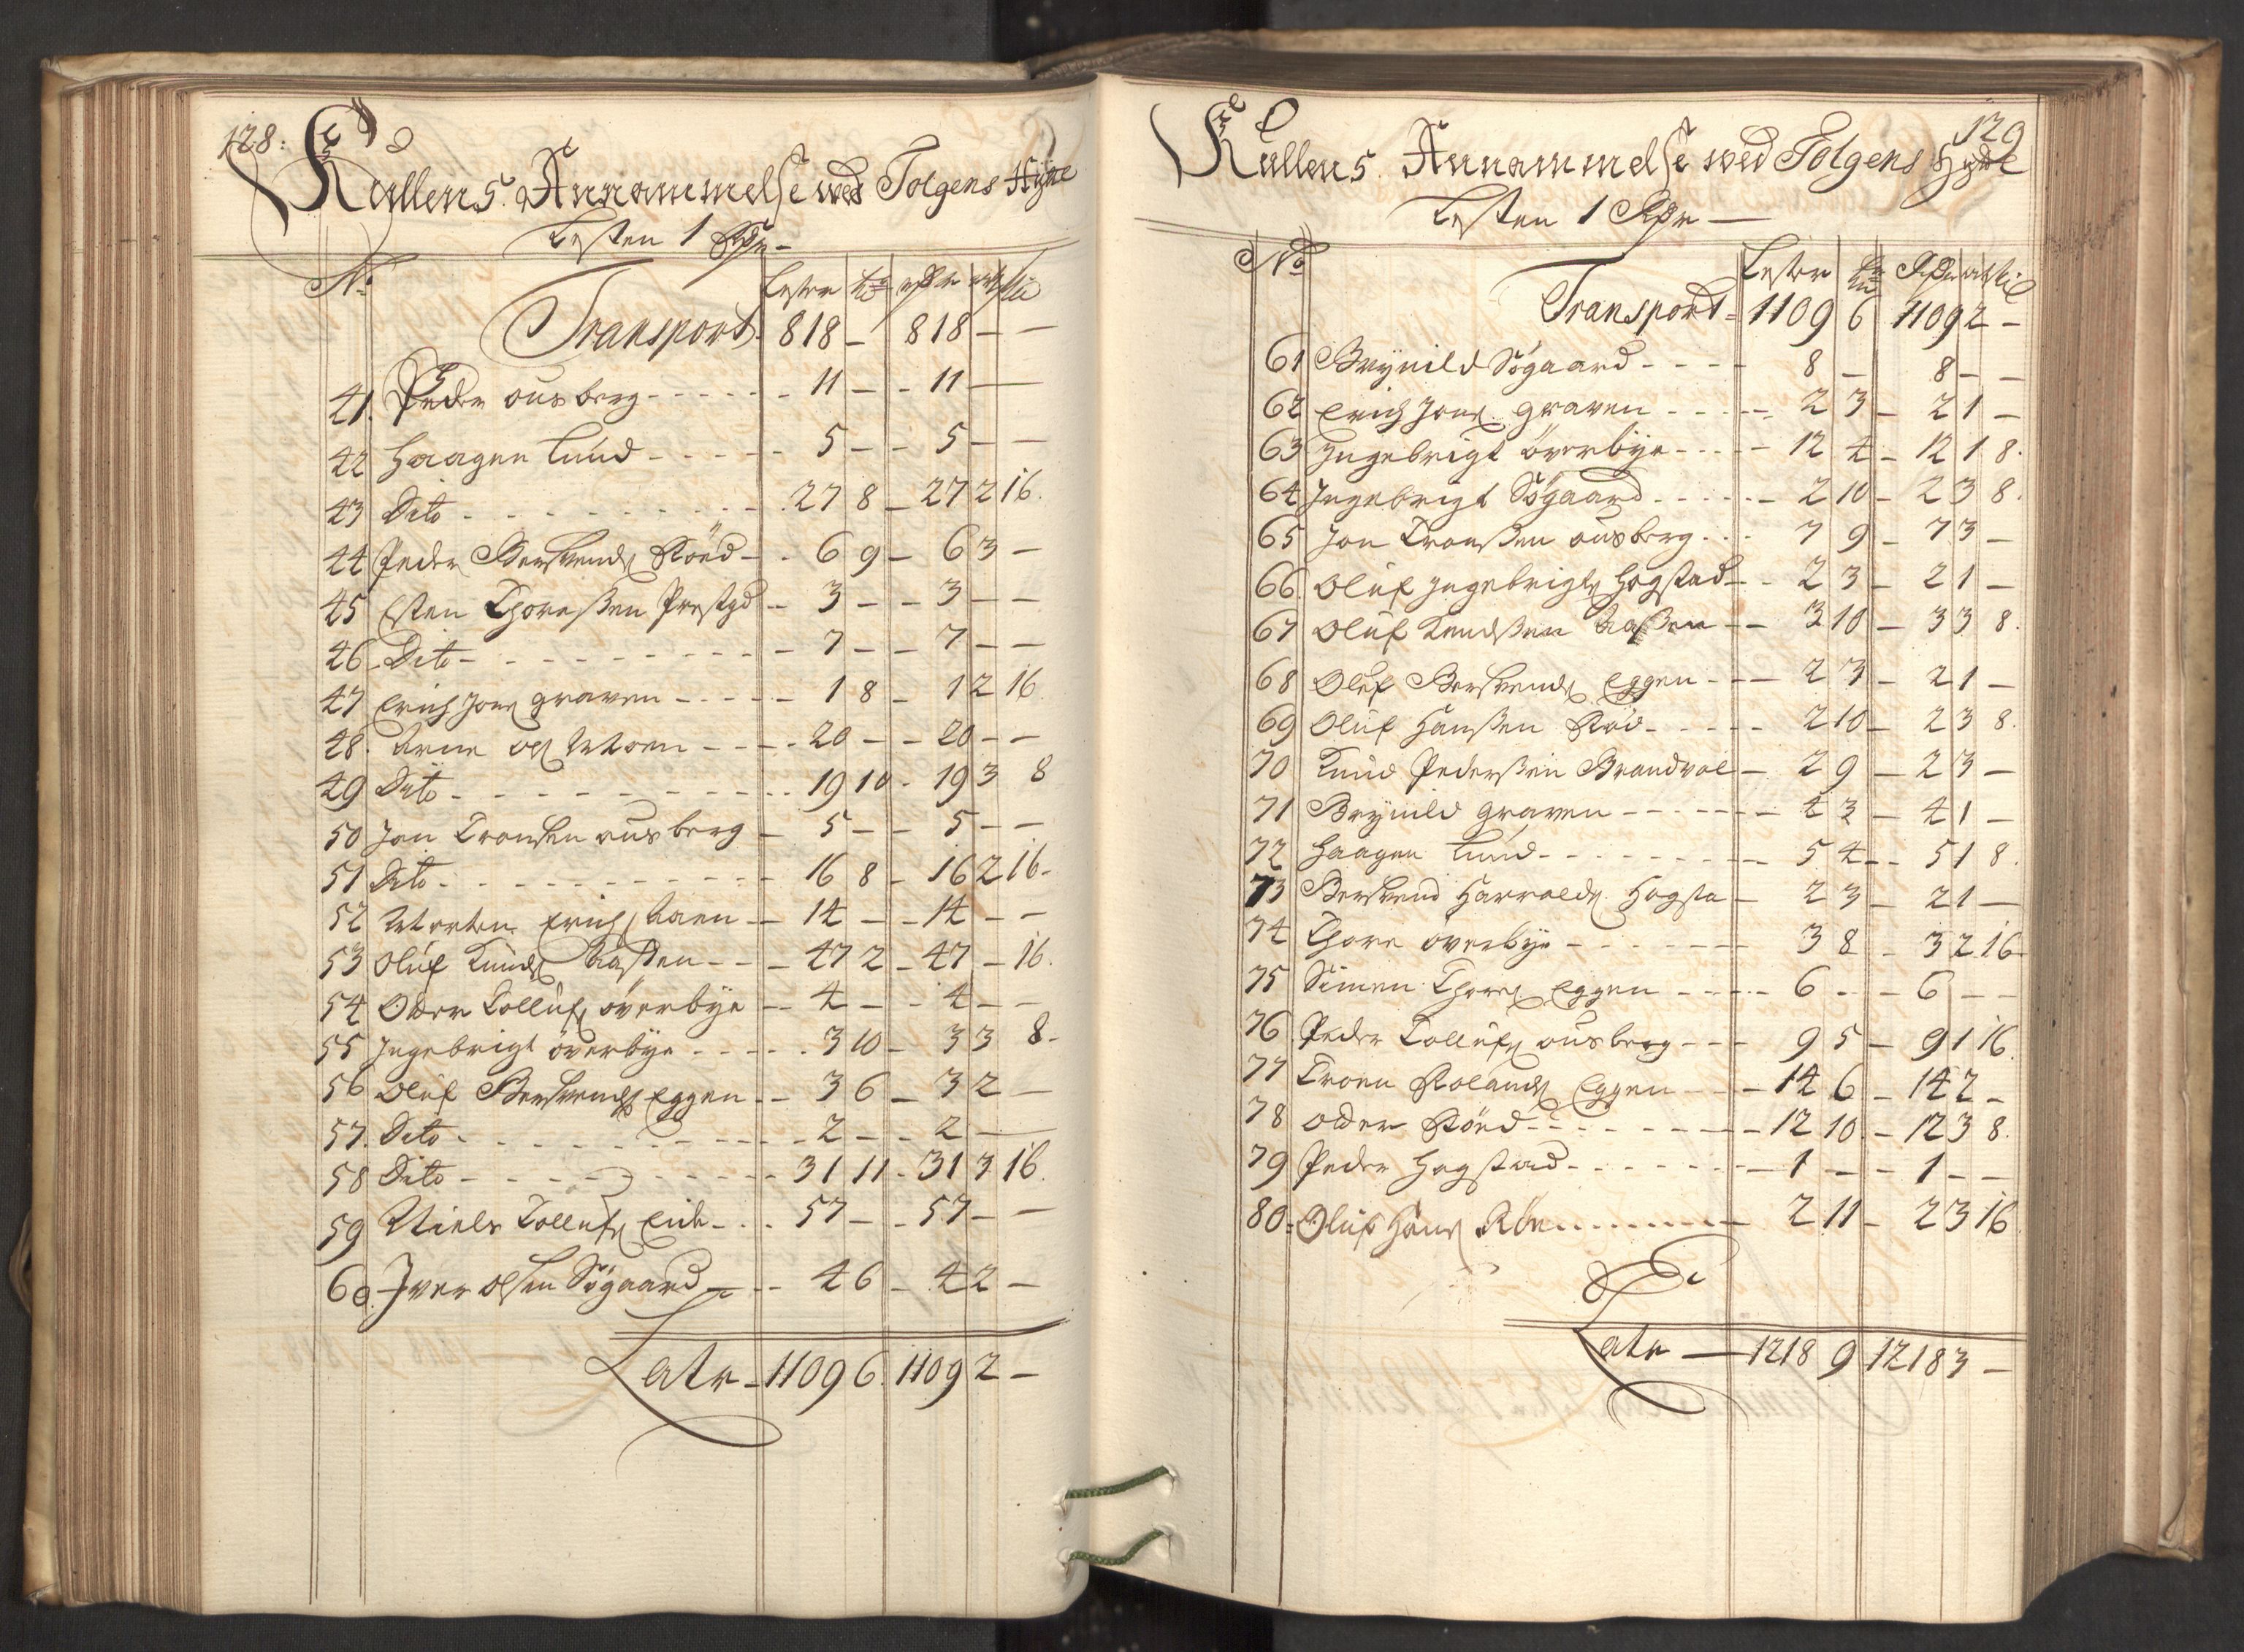 128:
Kullens Annammelse ved Tolgens Hytte
Lesten 1 Rdr –
No
Lester tr rdr ort sk
Transport 818 – 818 – –
41. Peder ousberg - - - - - 11 – - 11 –
42 Haagen Lund - - - - - 5 – - 5 – –
43 Dito - - - - - - - - 27 8 – 27 2 16.
44 Peder Berswends Röed - - 6 9 – 6 3 –
45 Esten Thoressen Prestgd - 3 – - 3 – –
46 Dito - - - - - - - - 7 – - 7 – –
47 Erich Jons graven - - - - - 1 8 – 1 2 16
48. Arne ols Moen - - - - 20 – - 20 – –
49 Dito - - - - - - - - 19 10 - 19 3 8
50 Jon Tronsen ousberg – 5 – - 5 – –
51 Dito - - - - - - - - 16 8 – 16 2 16-
52 Morten Erichs Aaen - - 14 – - 14 – –
53 Oluf Knuds Aassen - - - 47 2 – 47 – 16.
54 Oder Tollufs overbye - - 4 – - 4 – –
55 Ingebrigt overbye - - - - - 3 10 – 3 3 8-
56 Oluf Berswends Eggen - - 3 6 – 3 2 –
57. Dito - - - - - - - - 2 – - 2 –
58 Dito - - - - - - - - 31 11 - 31 3 16.
59 Niels Tollufs Eide - - - 57 – - 57 – –
60. Iver olsen Sögaard - - - 4 6 – 4 2 –
Latr – 1109 6. 1109 2 –
129
Kullens Annammelse ved Tolgens Hytte
Lesten 1 Rdr –
No
Lester tr Rdr ort skil
Transport - 1109 6 1109 2 –
61 Brynild Sögaard - - - - 8 – 8 – –
62 Erich Jons graven - - - - 2 3 – 2 1 –
63 Ingebrigt overbye - - - - 12 4 – 12 1 8.
64 Ingebrigt Sögaard - - - - - 2 10 – 2 3 8.
65 Jon Tronssen ousberg - - - 7 9 – 7 3 –
66. Oluf Ingebrigts Hogstad - - 2 3 – 2 1 –
67 Oluf Knudssen Aassen - - 3 10 – 3 3 8.
68 Oluf Berswends Eggen - - - 2 3 – 2 1 –
69 Oluf Hanssen Röd - - - - - 2 10 – 2 3 8.
70 Knud Pederssen Brandvol – 2 9 – 2 3 –
71 Brynild graven - - - - - - 4 3 – 4 1 –
72 Haagen Lund - - - - - - - 5 4 - - 5 1 8.
73 Berswend Harrolds Hogsta – 2 3 – 2 1 –
74 Thore overbye - - - - - - 3 8 – 3 2. 16-
75 Simen Thores Eggen - - - - 6 - - - 6 – –
76 Peder Tollufs ousberg - - - 9 5 – 9 1 16.
77 Troen Rolands Eggen - - - 14 6 – 14 2 –
78 Oder Röed - - - - - - - - 12 10. – 12 3 8.
79 Peder Hogstad - - - - - - - 1 – - 1 – –
80 - Oluf Hans Röe - - - - - - - 2 11 – 2 3 16
Latr — 1218 9 1218 3 –